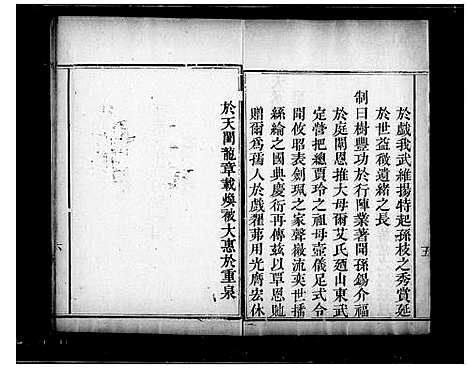 於戲我武維揚特起孫枝之秀賞延
於世益徵遺緒之長
制曰樹豐功於行陣業著聞孫錫介福
於庭闈恩推大母爾艾氏廼山東武
定營把總賈玲之祖母壺儀足式令
聞攸昭表劍珮之家聲徽流奕世播
絲綸之國典慶衍再傳茲以覃恩貤
贈爾為孺人於戲翟茀用光膺宏休
五
於天閫龍章載煥被大惠於重泉
六